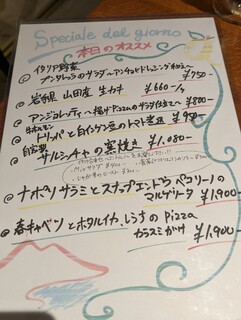 Speciale del giorno
本日のオススメ
イタリア野菜
プンタレッラのサラダ ~アンチョビドレッシング和え~ ¥750-
岩手県 山田産 生カキ ¥660-/ヶ
アンジョレッティ ~揚げピッツァのサラダ仕立て~ ¥800-
牛ホルモン
トリッパと白インゲン豆のトマト煮込 ¥950-
自家製
サルシッチャの窯焼き ¥1,080-
ナポリサラミとスナップエンドウ ペコリーノの
マルゲリータ ¥1,900-
春キャベツとホタルイカ、しらすのPizza
カラスミがけ ¥1,900-